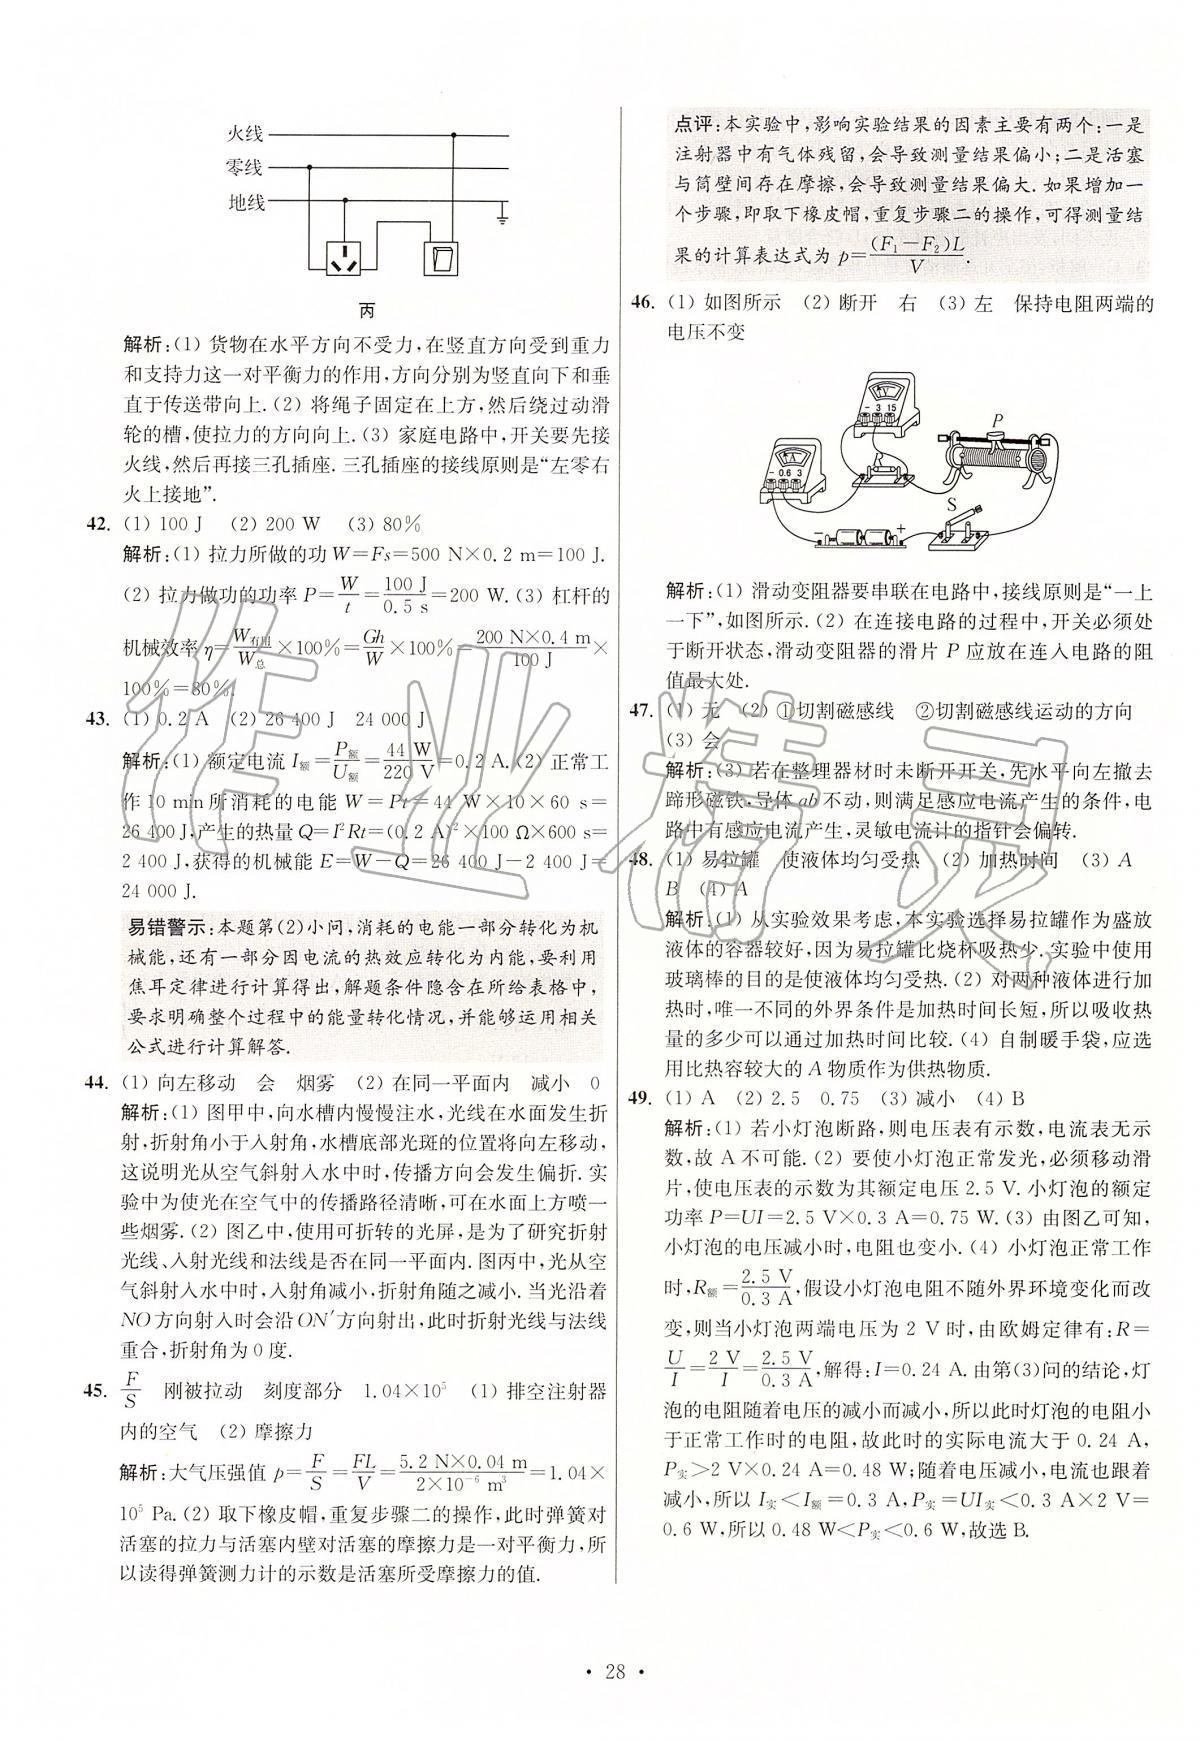 火线
零线
地线
丙
解析:(1) 货物在水平方向不受力,在竖直方向受到重力
和支持力这一对平衡力的作用,方向分别为竖直向下和垂
直于传送带向上.(2) 将绳子固定在上方,然后绕过动滑
轮的槽,使拉力的方向向上.(3) 家庭电路中,开关要先接
火线,然后再接三孔插座.三孔插座的接线原则是“左零右
火上接地”.
42. (1) 100 J (2) 200 W (3) 80%
解析:(1) 拉力所做的功 W=Fs=500 N×0.2 m=100 J.
(2) 拉力做功的功率 P=W/t=100 J/0.5 s=200 W.(3) 杠杆的
机械效率 η=W有用/W总×100%=Gh/W×100%=200 N×0.4 m/100 J×
100%=80%.
43. (1) 0.2 A (2) 26 400 J 24 000 J
解析:(1) 额定电流 I额=P额/U额=44 W/220 V=0.2 A.(2) 正常工
作 10 min 所消耗的电能 W=Pt=44 W×10×60 s=
26 400 J,产生的热量 Q=I²Rt=(0.2 A)²×100 Ω×600 s=
2 400 J,获得的机械能 E=W-Q=26 400 J-2 400 J=
24 000 J.
易错警示:本题第(2)小问,消耗的电能一部分转化为机
械能,还有一部分因电流的热效应转化为内能,要利用
焦耳定律进行计算得出,解题条件隐含在所给表格中,
要求明确整个过程中的能量转化情况,并能够运用相关
公式进行计算解答.
44. (1) 向左移动 会 烟雾 (2) 在同一平面内 减小 0
解析:(1) 图甲中,向水槽内慢慢注水,光线在水面发生折
射,折射角小于入射角,水槽底部光斑的位置将向左移动,
这说明光从空气斜射入水中时,传播方向会发生偏折.实
验中为使光在空气中的传播路径清晰,可在水面上方喷一
些烟雾.(2) 图乙中,使用可折转的光屏,是为了研究折射
光线、入射光线和法线是否在同一平面内.图丙中,光从空
气斜射入水中时,入射角减小,折射角随之减小.当光沿着
NO方向射入时会沿ON′方向射出,此时折射光线与法线
重合,折射角为0度.
45. F/S 刚被拉动 刻度部分 1.04×10⁵ (1) 排空注射器
内的空气 (2) 摩擦力
解析:大气压强值 p=F/S=FL/V=5.2 N×0.04 m/2×10⁻⁶ m³=1.04×
10⁵ Pa.(2) 取下橡皮帽,重复步骤二的操作,此时弹簧对
活塞的拉力与活塞内壁对活塞的摩擦力是一对平衡力,所
以读得弹簧测力计的示数是活塞所受摩擦力的值.
点评:本实验中,影响实验结果的因素主要有两个:一是
注射器中有气体残留,会导致测量结果偏小;二是活塞
与筒壁间存在摩擦,会导致测量结果偏大.如果增加一
个步骤,即取下橡皮帽,重复步骤二的操作,可得测量结
果的计算表达式为 p=(F₁-F₂)L/V.
46. (1) 如图所示 (2) 断开 右 (3) 左 保持电阻两端的
电压不变
V
- 3 15
A
-0.6 3
P
S
- +
解析:(1) 滑动变阻器要串联在电路中,接线原则是“一上
一下”,如图所示.(2) 在连接电路的过程中,开关必须处
于断开状态,滑动变阻器的滑片 P 应放在连入电路的阻
值最大处.
47. (1) 无 (2) ①切割磁感线 ②切割磁感线运动的方向
(3) 会
解析:(3) 若在整理器材时未断开开关,先水平向左撤去
蹄形磁铁,导体ab不动,则满足感应电流产生的条件,电
路中有感应电流产生,灵敏电流计的指针会偏转.
48. (1) 易拉罐 使液体均匀受热 (2) 加热时间 (3) A
B (4) A
解析:(1) 从实验效果考虑,本实验选择易拉罐作为盛放
液体的容器较好,因为易拉罐比烧杯吸热少.实验中使用
玻璃棒的目的是使液体均匀受热.(2) 对两种液体进行加
热时,唯一不同的外界条件是加热时间长短,所以吸收热
量的多少可以通过加热时间比较.(4) 自制暖手袋,应选
用比热容较大的 A 物质作为供热物质.
49. (1) A (2) 2.5 0.75 (3) 减小 (4) B
解析:(1) 若小灯泡断路,则电压表有示数,电流表无示
数,故 A 不可能.(2) 要使小灯泡正常发光,必须移动滑
片,使电压表的示数为其额定电压 2.5 V.小灯泡的额定
功率 P=UI=2.5 V×0.3 A=0.75 W.(3) 由图乙可知,
小灯泡的电压减小时,电阻也变小.(4) 小灯泡正常工作
时,R额=2.5 V/0.3 A,假设小灯泡电阻不随外界环境变化而改
变,则当小灯泡两端电压为 2 V 时,由欧姆定律有:R=
U/I=2 V/I=2.5 V/0.3 A,解得:I=0.24 A.由第(3)问的结论,灯
泡的电阻随着电压的减小而减小,所以此时灯泡的电阻小
于正常工作时的电阻,故此时的实际电流大于 0.24 A,
P实>2 V×0.24 A=0.48 W;随着电压减小,电流也跟着
减小,所以 I实<I额=0.3 A,P实=UI实<0.3 A×2 V=
0.6 W,所以 0.48 W<P实<0.6 W,故选 B.
作业精灵
• 28 •